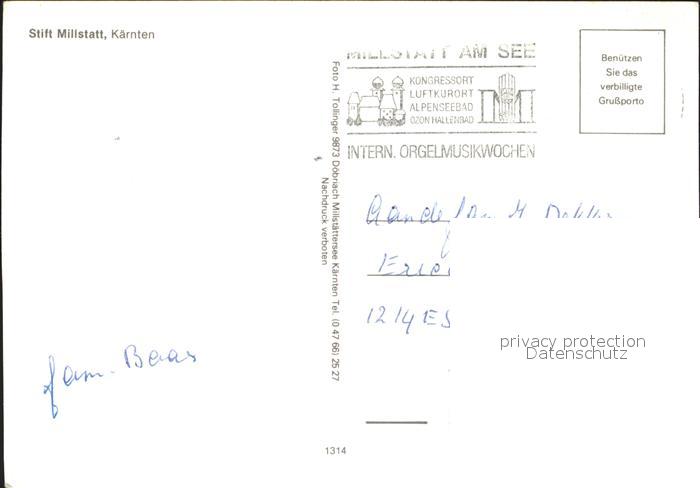 Stift Millstatt, Kärnten
MILLSTATT AM SEE
KONGRESSORT
LUFTKURORT
ALPENSEEBAD
OZON HALLENBAD
INTERN. ORGELMUSIKWOCHEN
Benützen
Sie das
verbilligte
Grußporto
Foto H. Tollinger 9873 Döbriach Millstättersee Kärnten Tel. (0 47 66) 25 27
Nachdruck verboten
1214 ES
privacy protection
Datenschutz
fam. Baas
1314